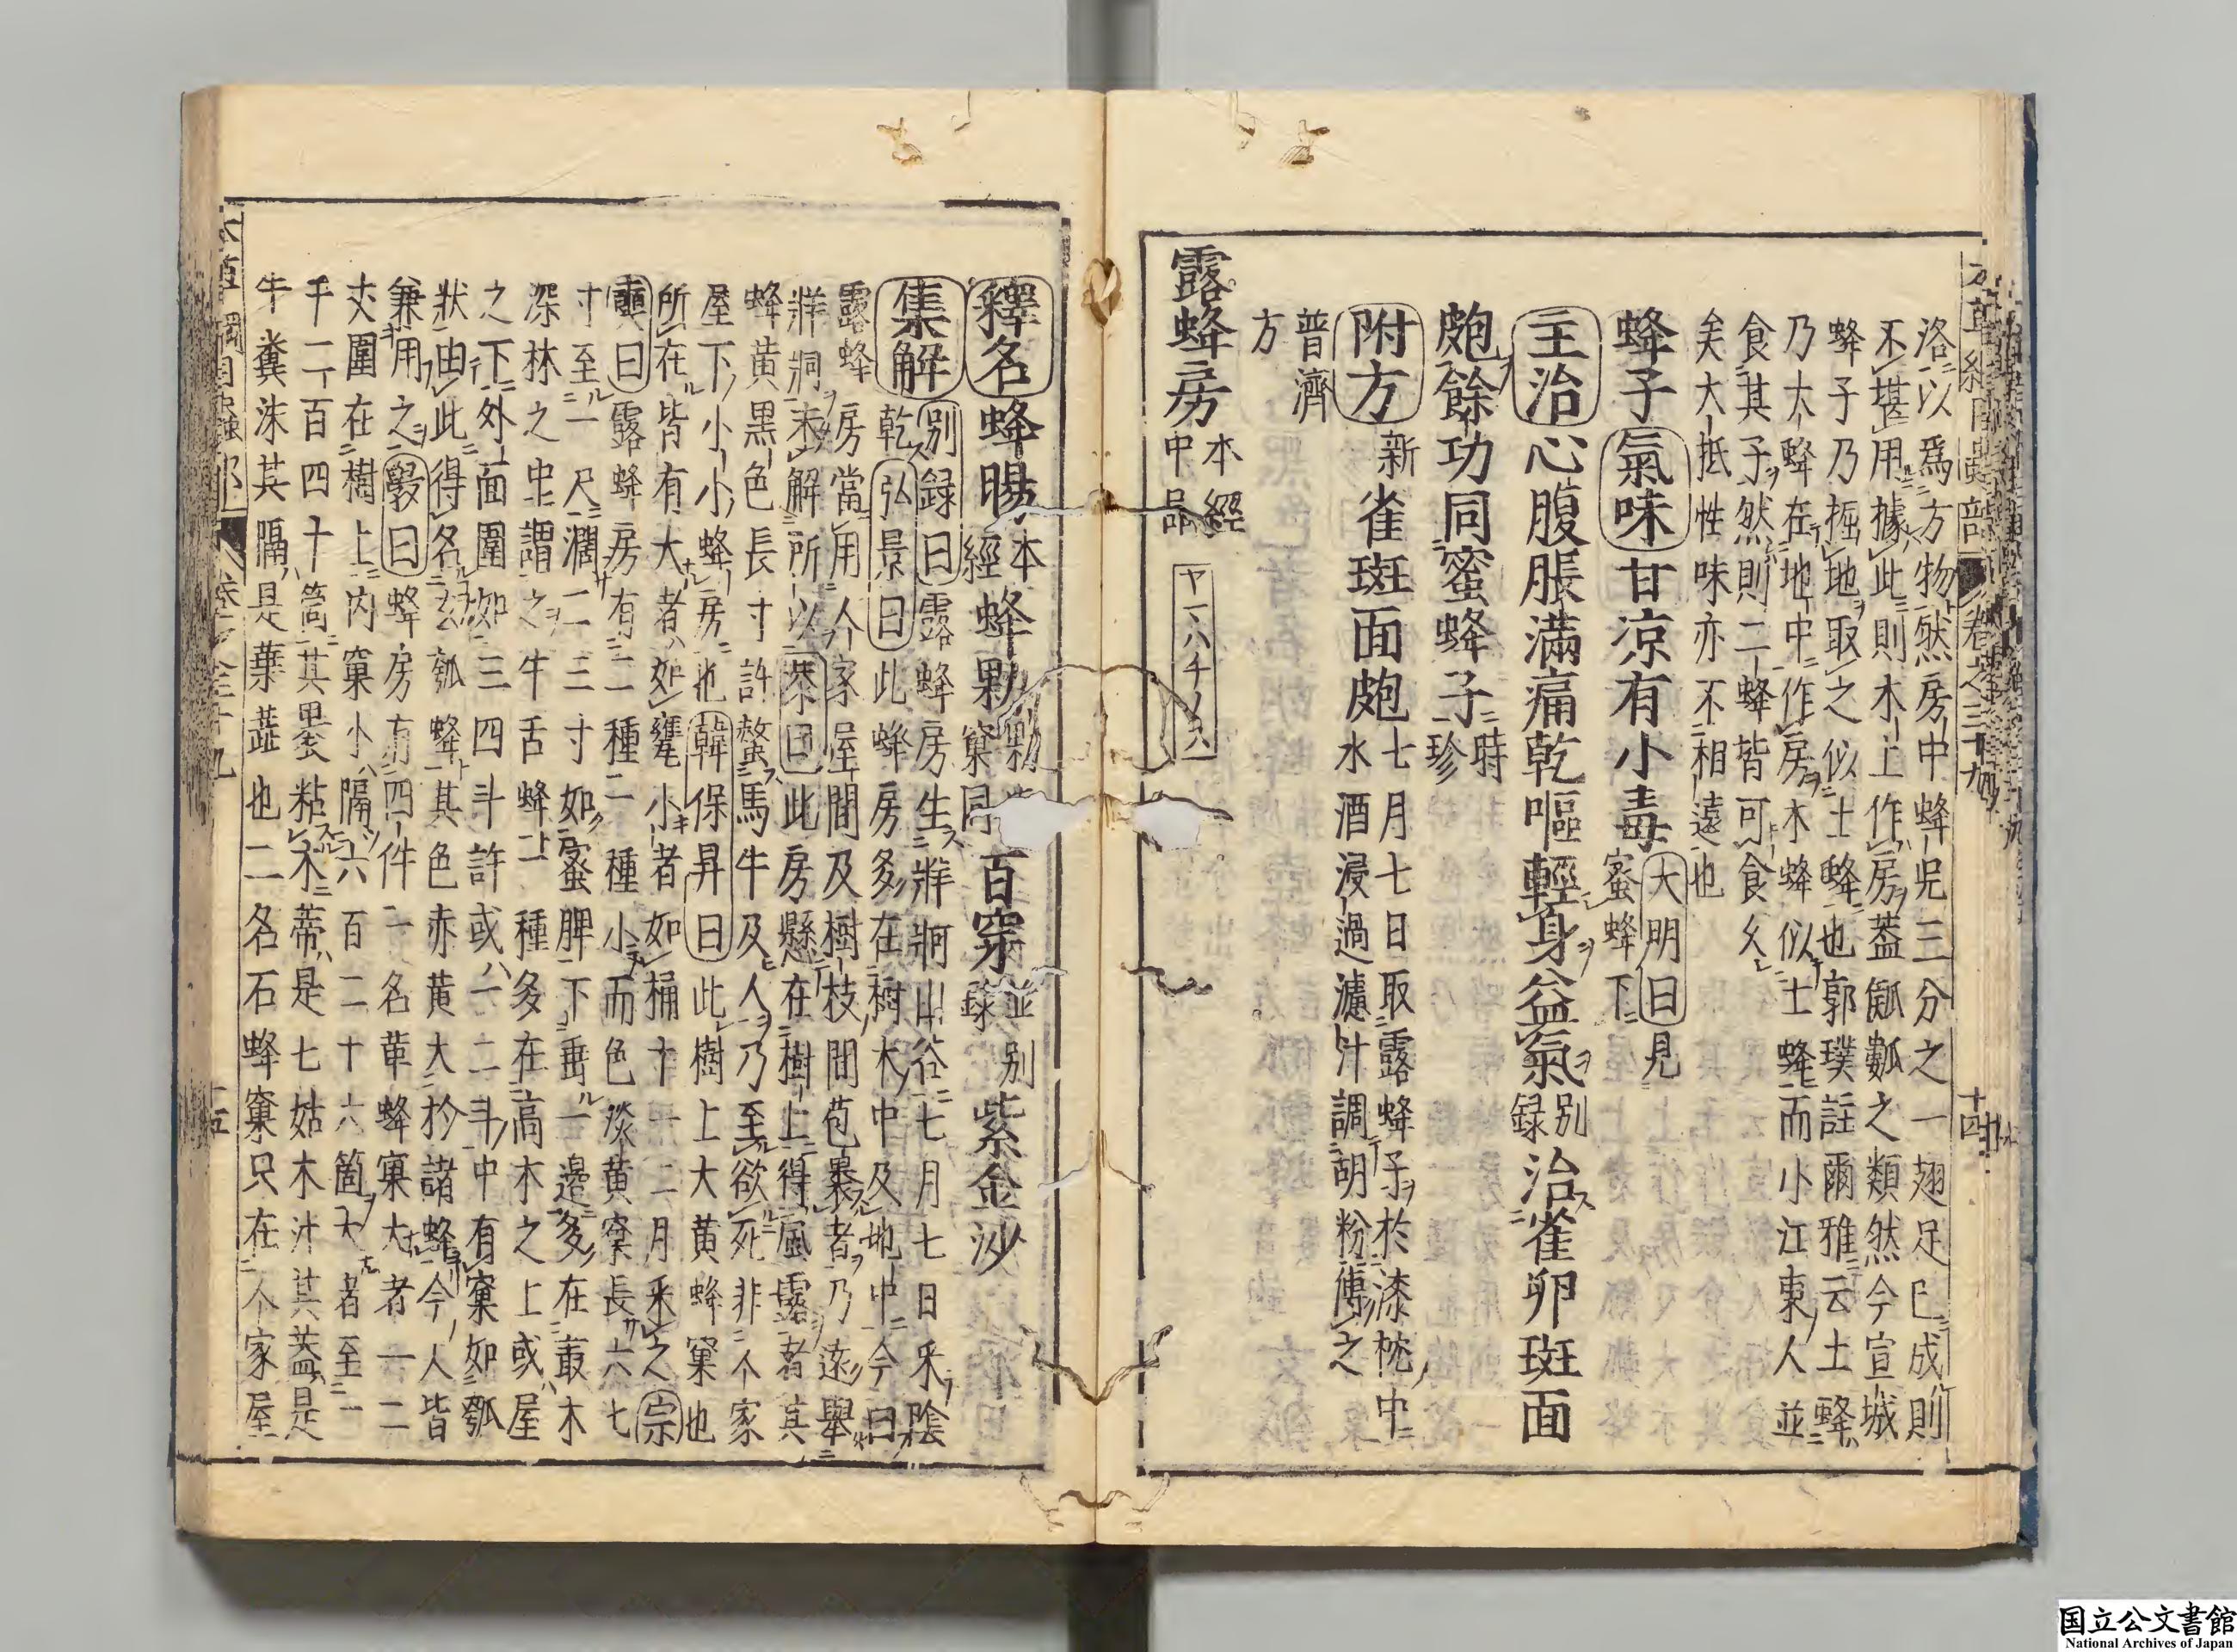 洛以爲方物然房中蜂兒三分之一翅足已成則
不堪用據此則木上作房蓋瓠瓤之類然今宣城
蜂子乃掘地取之似土蜂也郭璞註爾雅云土蜂
乃大蜂在地中作房木蜂似土蜂而小江東人並
食其子然則二蜂皆可食久
矣大抵性味亦不相遠也
蜂子氣味甘涼有小毒大明曰見
蜜蜂下
主治心腹脹滿痛乾嘔輕身益氣別
録治雀卵斑面
皰餘功同蜜蜂子時
珍
附方新雀斑面皰七月七日取露蜂子於漆椀中
水酒浸過濾汁調胡粉傅之
普濟
方
露蜂房本經
中品
ヤマハチノス
釋名蜂腸本
經蜂
窠同百穿並別
録紫金沙
集解別録曰露蜂房生牂牁山谷七月七日采陰
乾弘景曰此蜂房多在樹木中及地中今曰
露蜂房當用人家屋間及樹枝間苞裹者乃遠舉
牂牁未解所以恭曰此房懸在樹上得風露者其
蜂黄黒色長寸許螫馬牛及人乃至欲死非人家
屋下小小蜂房也韓保昇曰此樹上大黄蜂窠也
所在皆有大者如甕小者如桶十一二月采之宗
奭曰露蜂房有二種一種小而色淡黄窠長六七
寸至一尺濶二三寸如蜜脾下垂一邊多在叢木
深林之中謂之牛舌蜂一種多在高木之上或屋
之下外面圍如三四斗許或一二斗中有窠如瓠
狀由此得名玄瓠蜂其色赤黄大於諸蜂今人皆
兼用之斅曰蜂房有四件一名革蜂窠大者一二
丈圍在樹上内窠小隔六百二十六箇大者至一
千二百四十箇其裹粘木蒂是七姑木汁其蓋是
牛糞沫其隔是葉蕋也二名石蜂窠只在人家屋
国立公文書館
National Archives of Japan